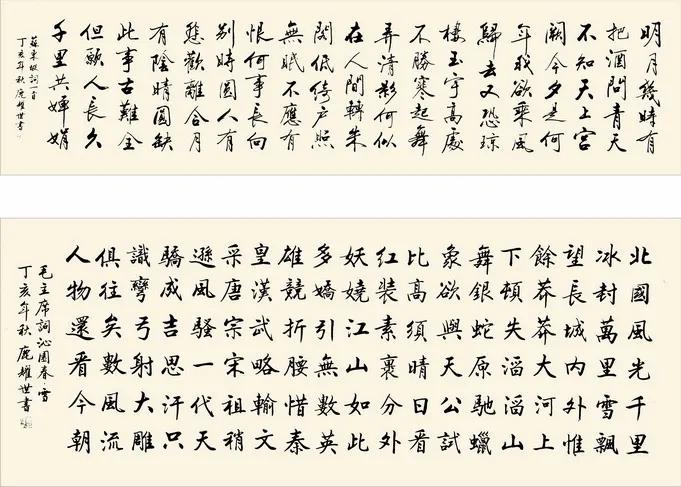 明月幾時有
把酒問青天
不知天上宮
闕今夕是何
年我欲乘風
歸去又恐琼
樓玉宇高處
不勝寒起舞
弄清影何似
在人間轉朱
閣低倚户照
無眠不應有
恨何事長向
別時圓人有
悲歡離合月
有陰晴圓缺
此事古難全
但願人長久
千里共嬋娟
蘇東坡詞一首
丁亥年秋鹿耀世書
北國風光千里
冰封萬里雪飄
望長城內外惟
餘莽莽大河上
下頓失滔滔山
舞銀蛇原馳蠟
象欲與天公試
比高須晴日看
紅裝素裹分外
妖嬈江山如此
多嬌引無數英
雄競折腰惜秦
皇漢武略輸文
采唐宗宋祖稍
遜風騷一代天
驕成吉思汗只
識彎弓射大雕
俱往矣數風流
人物還看今朝
毛主席詞沁園春·雪
丁亥年秋鹿耀世書